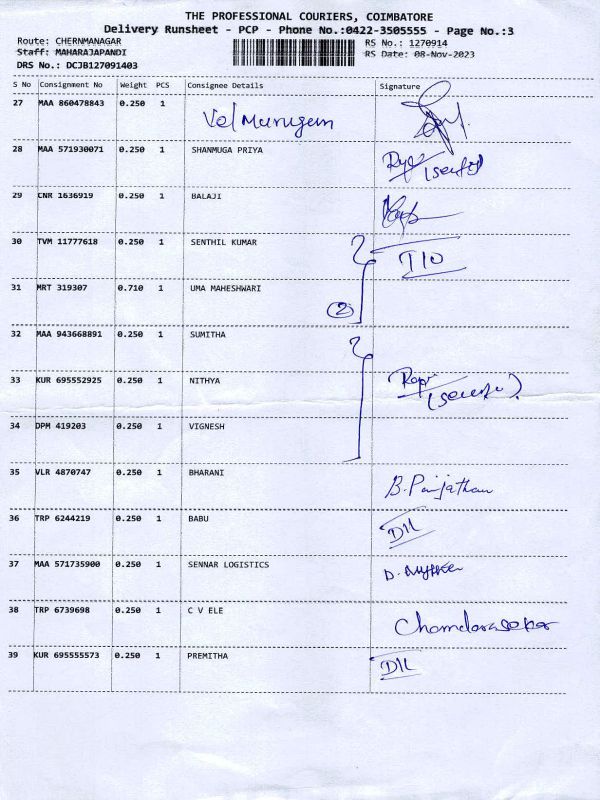 THE PROFESSIONAL COURIERS, COIMBATORE
Delivery Runsheet - PCP - Phone No.:0422-3505555 - Page No.:3
Route: CHERNMANAGAR RS No.: 1270914
Staff: MAHARAJAPANDI RS Date: 08-Nov-2023
DRS No.: DCJB127091403
S No Consignment No Weight PCS Consignee Details Signature
27 MAA 860478843 0.250 1 Vel Murugan
28 MAA 571930071 0.250 1 SHANMUGA PRIYA
29 CNR 1636919 0.250 1 BALAJI
30 TVM 11777618 0.250 1 SENTHIL KUMAR
31 MRT 319307 0.710 1 UMA MAHESHWARI (2)
32 MAA 943668891 0.250 1 SUMITHA
33 KUR 695552925 0.250 1 NITHYA
34 DPM 419203 0.250 1 VIGNESH
35 VLR 4870747 0.250 1 BHARANI
36 TRP 6244219 0.250 1 BABU D/L
37 MAA 571735900 0.250 1 SENNAR LOGISTICS
38 TRP 6739698 0.250 1 C V ELE Chandarasekar
39 KUR 695555573 0.250 1 PREMITHA D/L